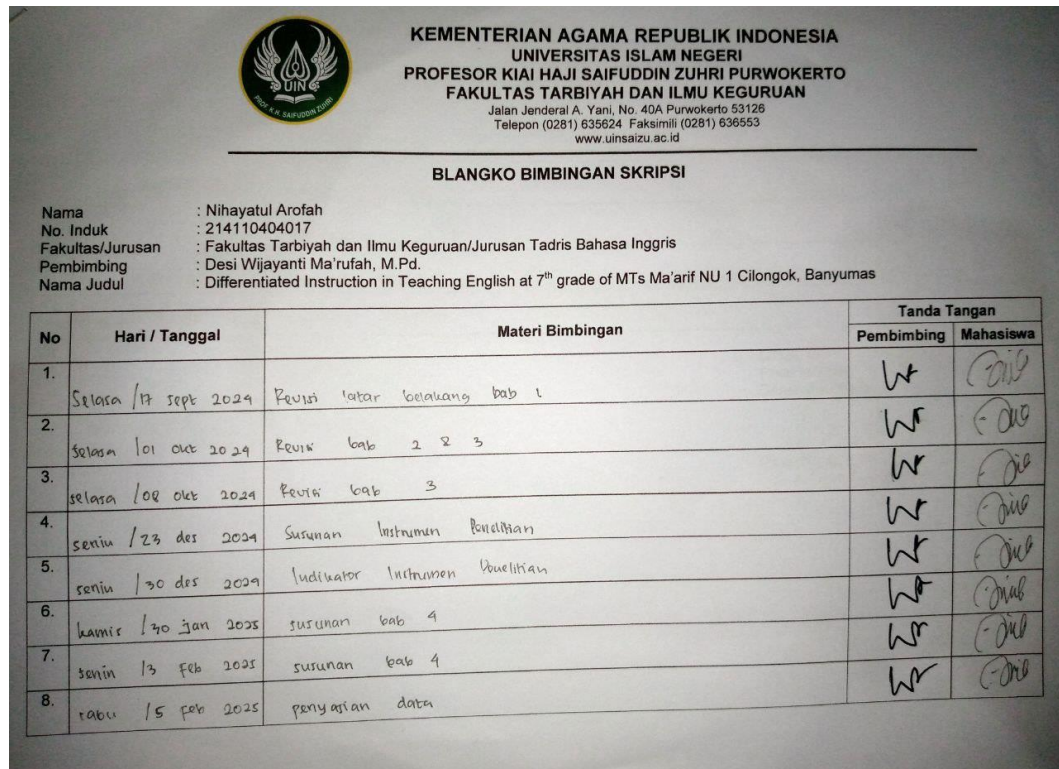 UIN
PROF. K.H. SAIFUDDIN ZUHRI
KEMENTERIAN AGAMA REPUBLIK INDONESIA
UNIVERSITAS ISLAM NEGERI
PROFESOR KIAI HAJI SAIFUDDIN ZUHRI PURWOKERTO
FAKULTAS TARBIYAH DAN ILMU KEGURUAN
Jalan Jenderal A. Yani, No. 40A Purwokerto 53126
Telepon (0281) 635624 Faksimili (0281) 636553
www.uinsaizu.ac.id
BLANGKO BIMBINGAN SKRIPSI
Nama : Nihayatul Arofah
No. Induk : 214110404017
Fakultas/Jurusan : Fakultas Tarbiyah dan Ilmu Keguruan/Jurusan Tadris Bahasa Inggris
Pembimbing : Desi Wijayanti Ma'rufah, M.Pd.
Nama Judul : Differentiated Instruction in Teaching English at 7th grade of MTs Ma'arif NU 1 Cilongok, Banyumas
No Hari / Tanggal Materi Bimbingan Tanda Tangan
Pembimbing Mahasiswa
1. Selasa / 17 sept 2024 Revisi latar belakang bab 1
2. Selasa / 01 okt 2024 Revisi bab 2 & 3
3. selasa / 08 okt 2024 Revisi bab 3
4. senin / 23 des 2024 Susunan Instrumen Penelitian
5. senin / 30 des 2024 Indikator Instrumen Penelitian
6. kamis / 30 jan 2025 susunan bab 4
7. senin / 3 feb 2025 susunan bab 4
8. rabu / 5 feb 2025 penyajian data